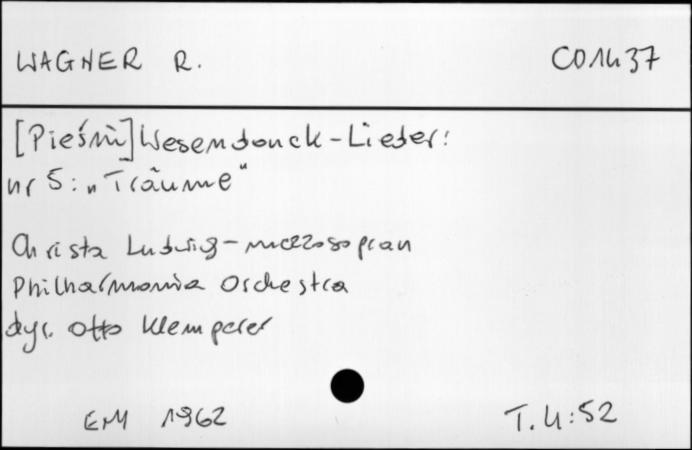 WAGNER R. CD1437
[Pieśni] Wesendonck-Lieder:
nr 5: „Träume"
Christa Ludwig - mezzosopran
Philharmonia Orchestra
dyr. Otto Klemperer
EMI 1962 T. 4:52